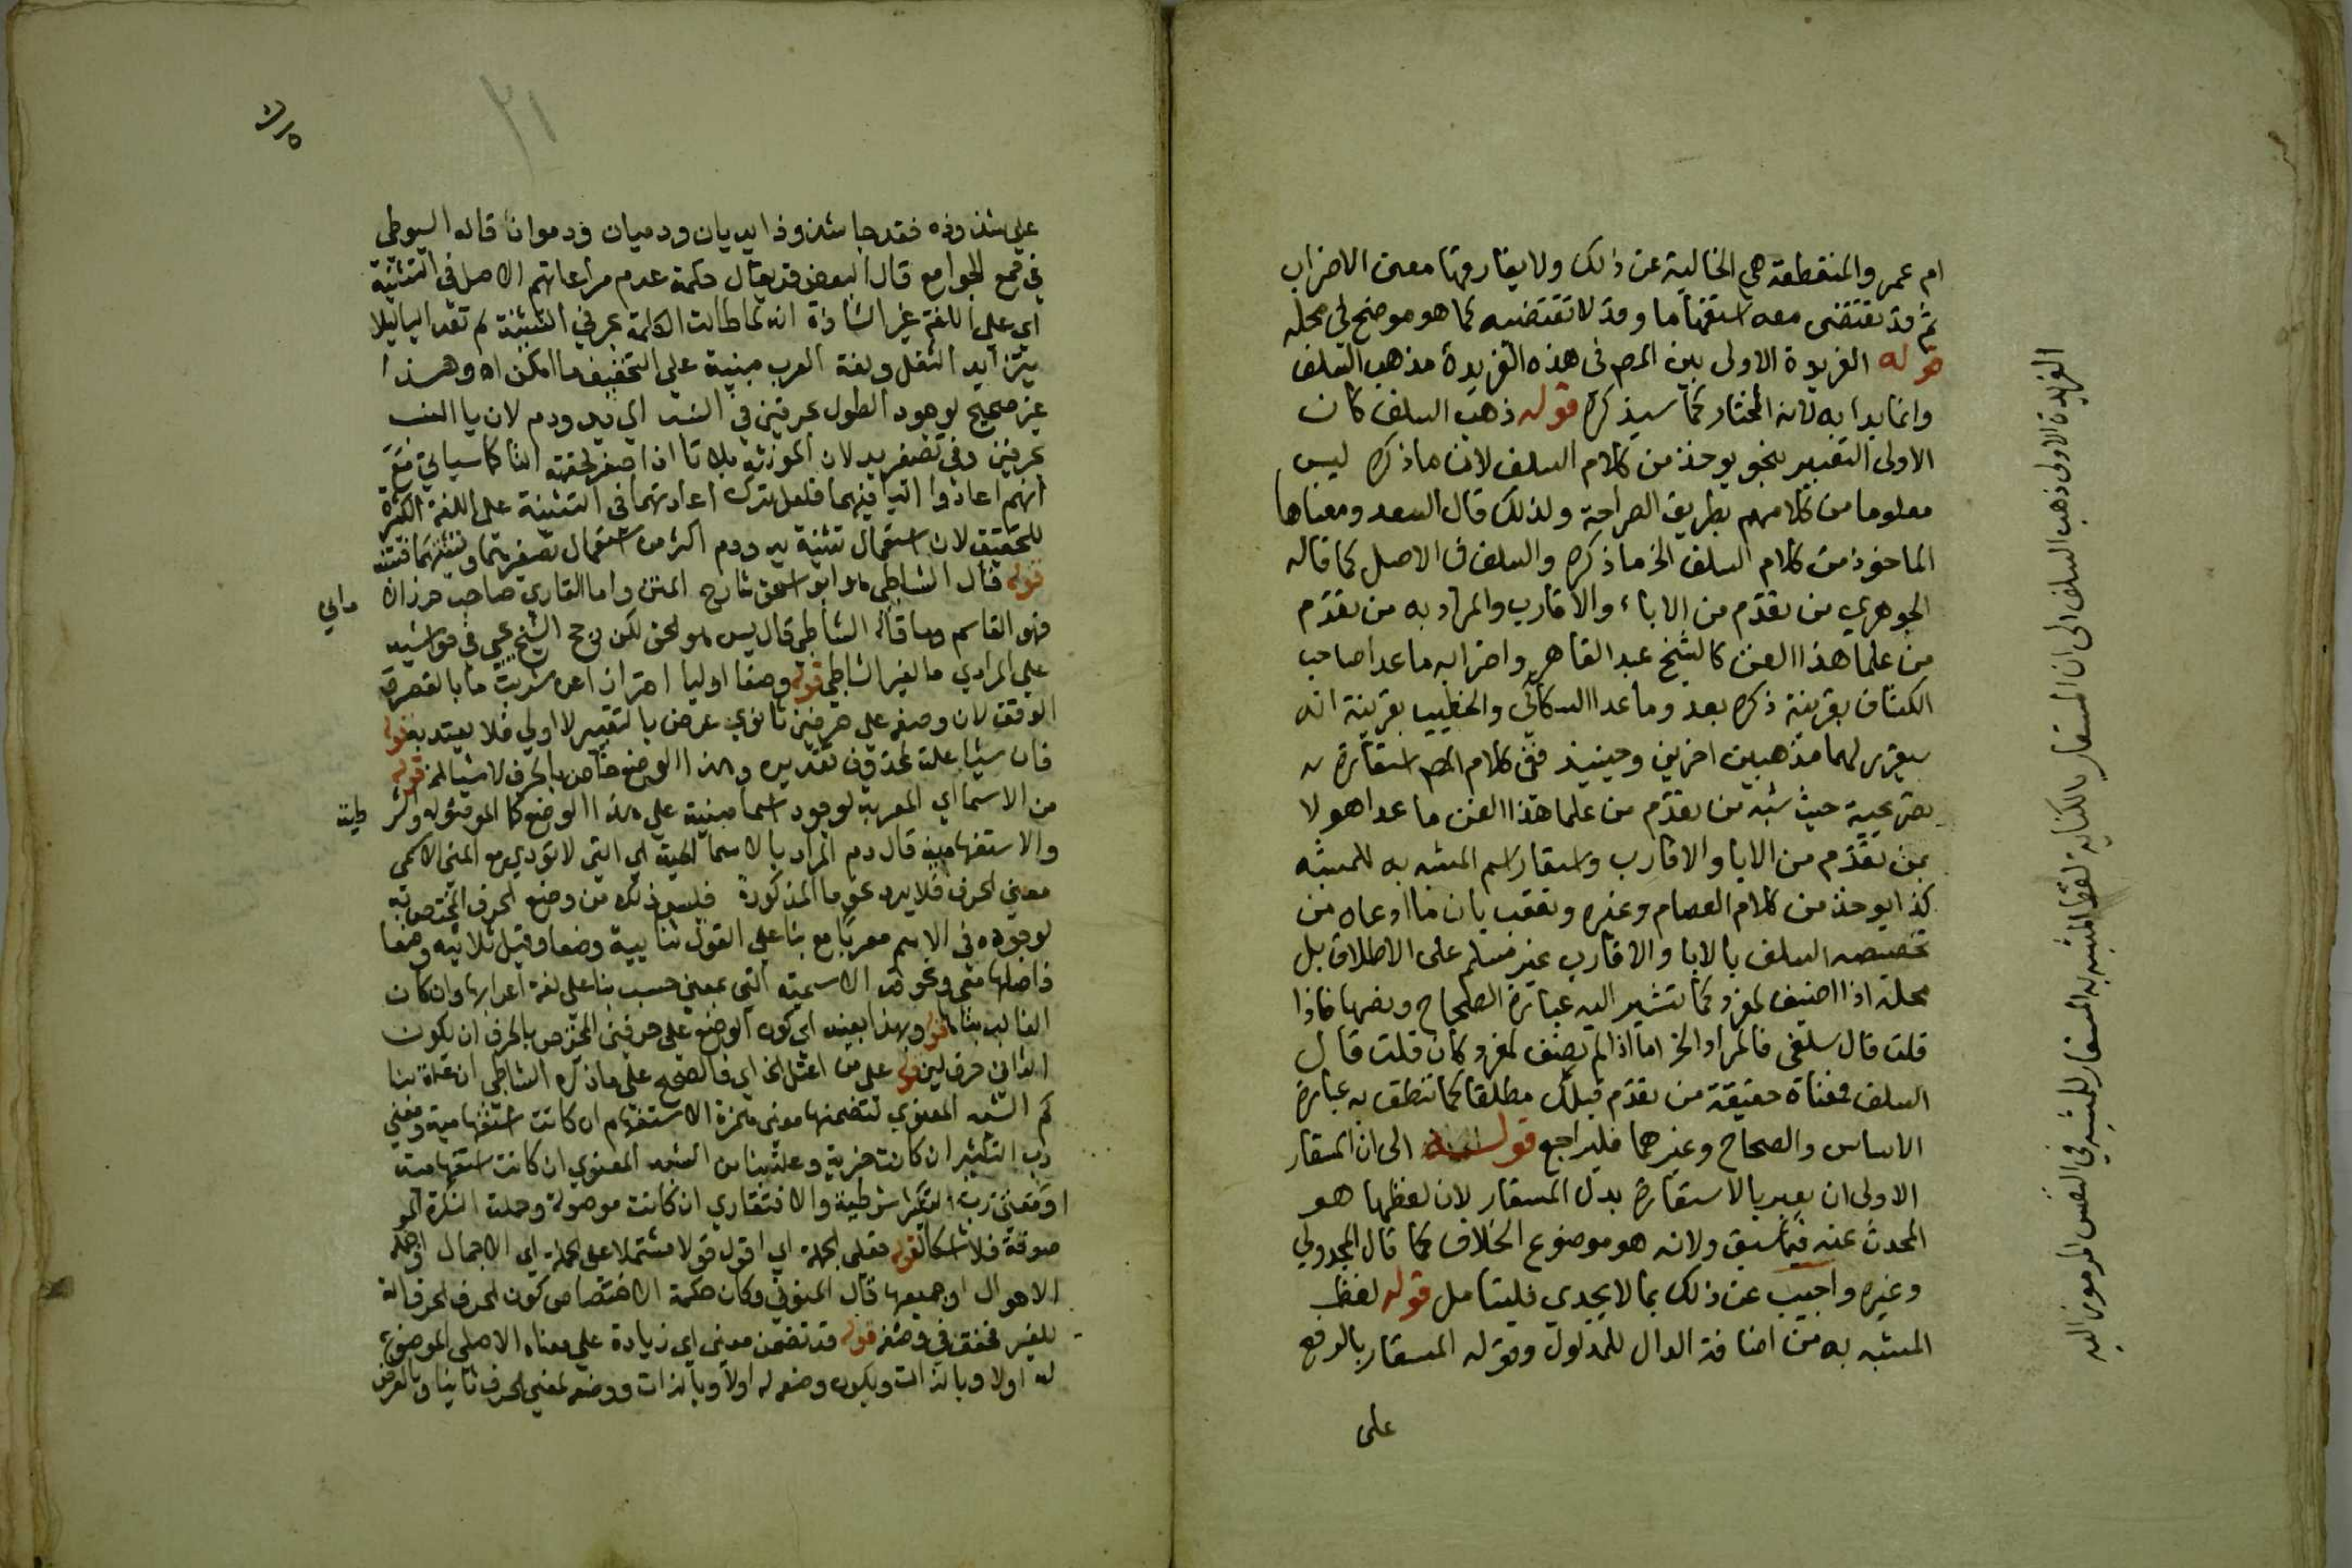 ام عمرو والمنقطعة هي الخالية عن ذلك ولا يفارقها معنى الاضراب
ثم قد تقتضى معه استفهاما وقد لا تقتضيه كما هو موضح فى محله
قوله الفريدة الاولى بين المص فى هذه الفريدة مذهب السلف
وانما بدا به لانه المختار كما سيذكره قوله ذهب السلف كان
الاولى التعبير بنحو يوخذ من كلام السلف لان ما ذكره ليس
معلوما من كلامهم بطريق الصراحة ولذلك قال السعد ومعناها
الماخوذ من كلام السلف الخ ما ذكره والسلف فى الاصل كما قاله
الجوهري من تقدم من الاباء والاقارب والمراد به من تقدم
من علما هذا الفن كالشيخ عبد القاهر واضرابه ما عدا صاحب
الكشاف بقرينة ذكره بعد وما عدا السكاكي والخطيب بقرينة انه
سيقرر لهما مذهبين اخرين وحينئذ ففى كلام المص استعارة
تصريحية حيث شبه من تقدم من علما هذا الفن ما عدا هولا
بمن تقدم من الابا والاقارب واستعار اسم المشبه به للمشبه
كذا يوخذ من كلام العصام وغيره وتعقب بان ما ادعاه من
تخصيصه السلف بالابا والاقارب غير مسلم على الاطلاق بل
محله اذا اضيف لمفرد كما تشير اليه عبارة الصحاح ونصها فاذا
قلت قال سلفى فالمراد الخ اما اذا لم يضف لمفرد كان قلت قال
السلف فمعناه حقيقة من تقدم قبلك مطلقا كما تنطق به عبارة
الاساس والصحاح وغيرهما فليراجع قوله الى ان المستعار
الاولى ان يعبر بالاستعارة بدل المستعار لان لفظها هو
المحدث عنه فيما سبق ولانه هو موضوع الخلاف كما قال المجدولي
وغيره واجيب عن ذلك بما لا يجدي فليتامل قوله لفظ
المشبه به من اضافة الدال للمدلول وقوله المستعار بالرفع
على
الفريدة الاولى ذهب السلف الى ان المستعار بالكناية لفظ المشبه به المستعار للمشبه فى النفس المرموز اليه
٢١
على شذوذه فقد جا شذوذا يديان ودميان ودموان قاله السيوطي
في همع الجوامع قال البعض قد يقال حكمة عدم مراعاتهم الاصل في التثنية
اي على اللغة غير الشاذة انه لما طالت الكلمة بحرفي التثنية لم تعد اليا ليلا
يتزايد الثقل ولغة العرب مبنية على التخفيف ما امكن اه وهذا
غير صحيح لوجود الطول بحرفين في النسب الى يد ودم لان يا النسب
بحرفين وفي تصغير يد لان المونث بلا تا اذا صغر لحقته التا كما سياتي مع
انهم اعادوا اليا فيهما فلعل ترك اعادتهما في التثنية على اللغة الكثيرة
للتخفيف لان استعمال تثنية يد ودم اكثر من استعمال تصغيرهما
قوله قال الشاطبي هو ابو اسحق شارح المتن واما القاري صاحب حرز الاماني
فهو القاسم وما قاله الشاطبي قال يس هو الحق لكن رجح الشيخ يحيى في حواشيه
على المرادي ما لغير الشاطبي قوله وضعا اوليا احترازا عن شربت ما بالقصر
الوقف لان وضعه على حرفين ثانوي عرض بالتغيير لا اولي فلا يعتد به قوله
فان شيئا علة لمحذوف تقديره وهذا الوضع خاص بالحرف لان شيئا الخ قوله
من الاسما اي المعربة لوجود اسما مبنية على هذا الوضع كما الموصولة والشرطية
والاستفهامية قال دم المراد بالاسما الحية اي التي لا تودي مع المعنى الاسمي
معنى الحرف فلا يرد نحو ما المذكورة فليس ذلك من وضع الحرف المختص به
لوجوده في الاسم معربا مع بنا على القول ثنايية وضعا وقيل ثلاثية وضعا
فاصلها معي ونحو قد الاسمية التي بمعنى حسب بنا على لغة اعرابها وان كان
الغالب بناها قوله وبهذا بعينه اي كون الوضع على حرفين المختص بالحرف ان يكون
الثاني حرف لين قوله على من اعتل الخ اي فالصحيح على ما ذكره الشاطبي ان علة بنا
كم الشبه المعنوي لتضمنها معنى همزة الاستفهام ان كانت استفهامية ومعنى
رب التكثير ان كانت خبرية وعلة بنا من الشبه المعنوي ان كانت استفهامية
او شرطية والافتقاري ان كانت موصولة وحملت النكرة المو
صوفة قوله فعلى الجملة اي اقول قولا مشتملا على الجملة اي الاجمال او جملة
الاحوال او جميعها قال المنوفي وكان حكمة الاختصاص كون الحرف الحرف الة
للغير فخفف في وضعه قوله قد تضمن معنى اي زيادة على معناه الاصلي الموضوع
له اولا وبالذات ويكون وضعه له اولا وبالذات ووضعه لمعنى الحرف ثانيا وبالعرض